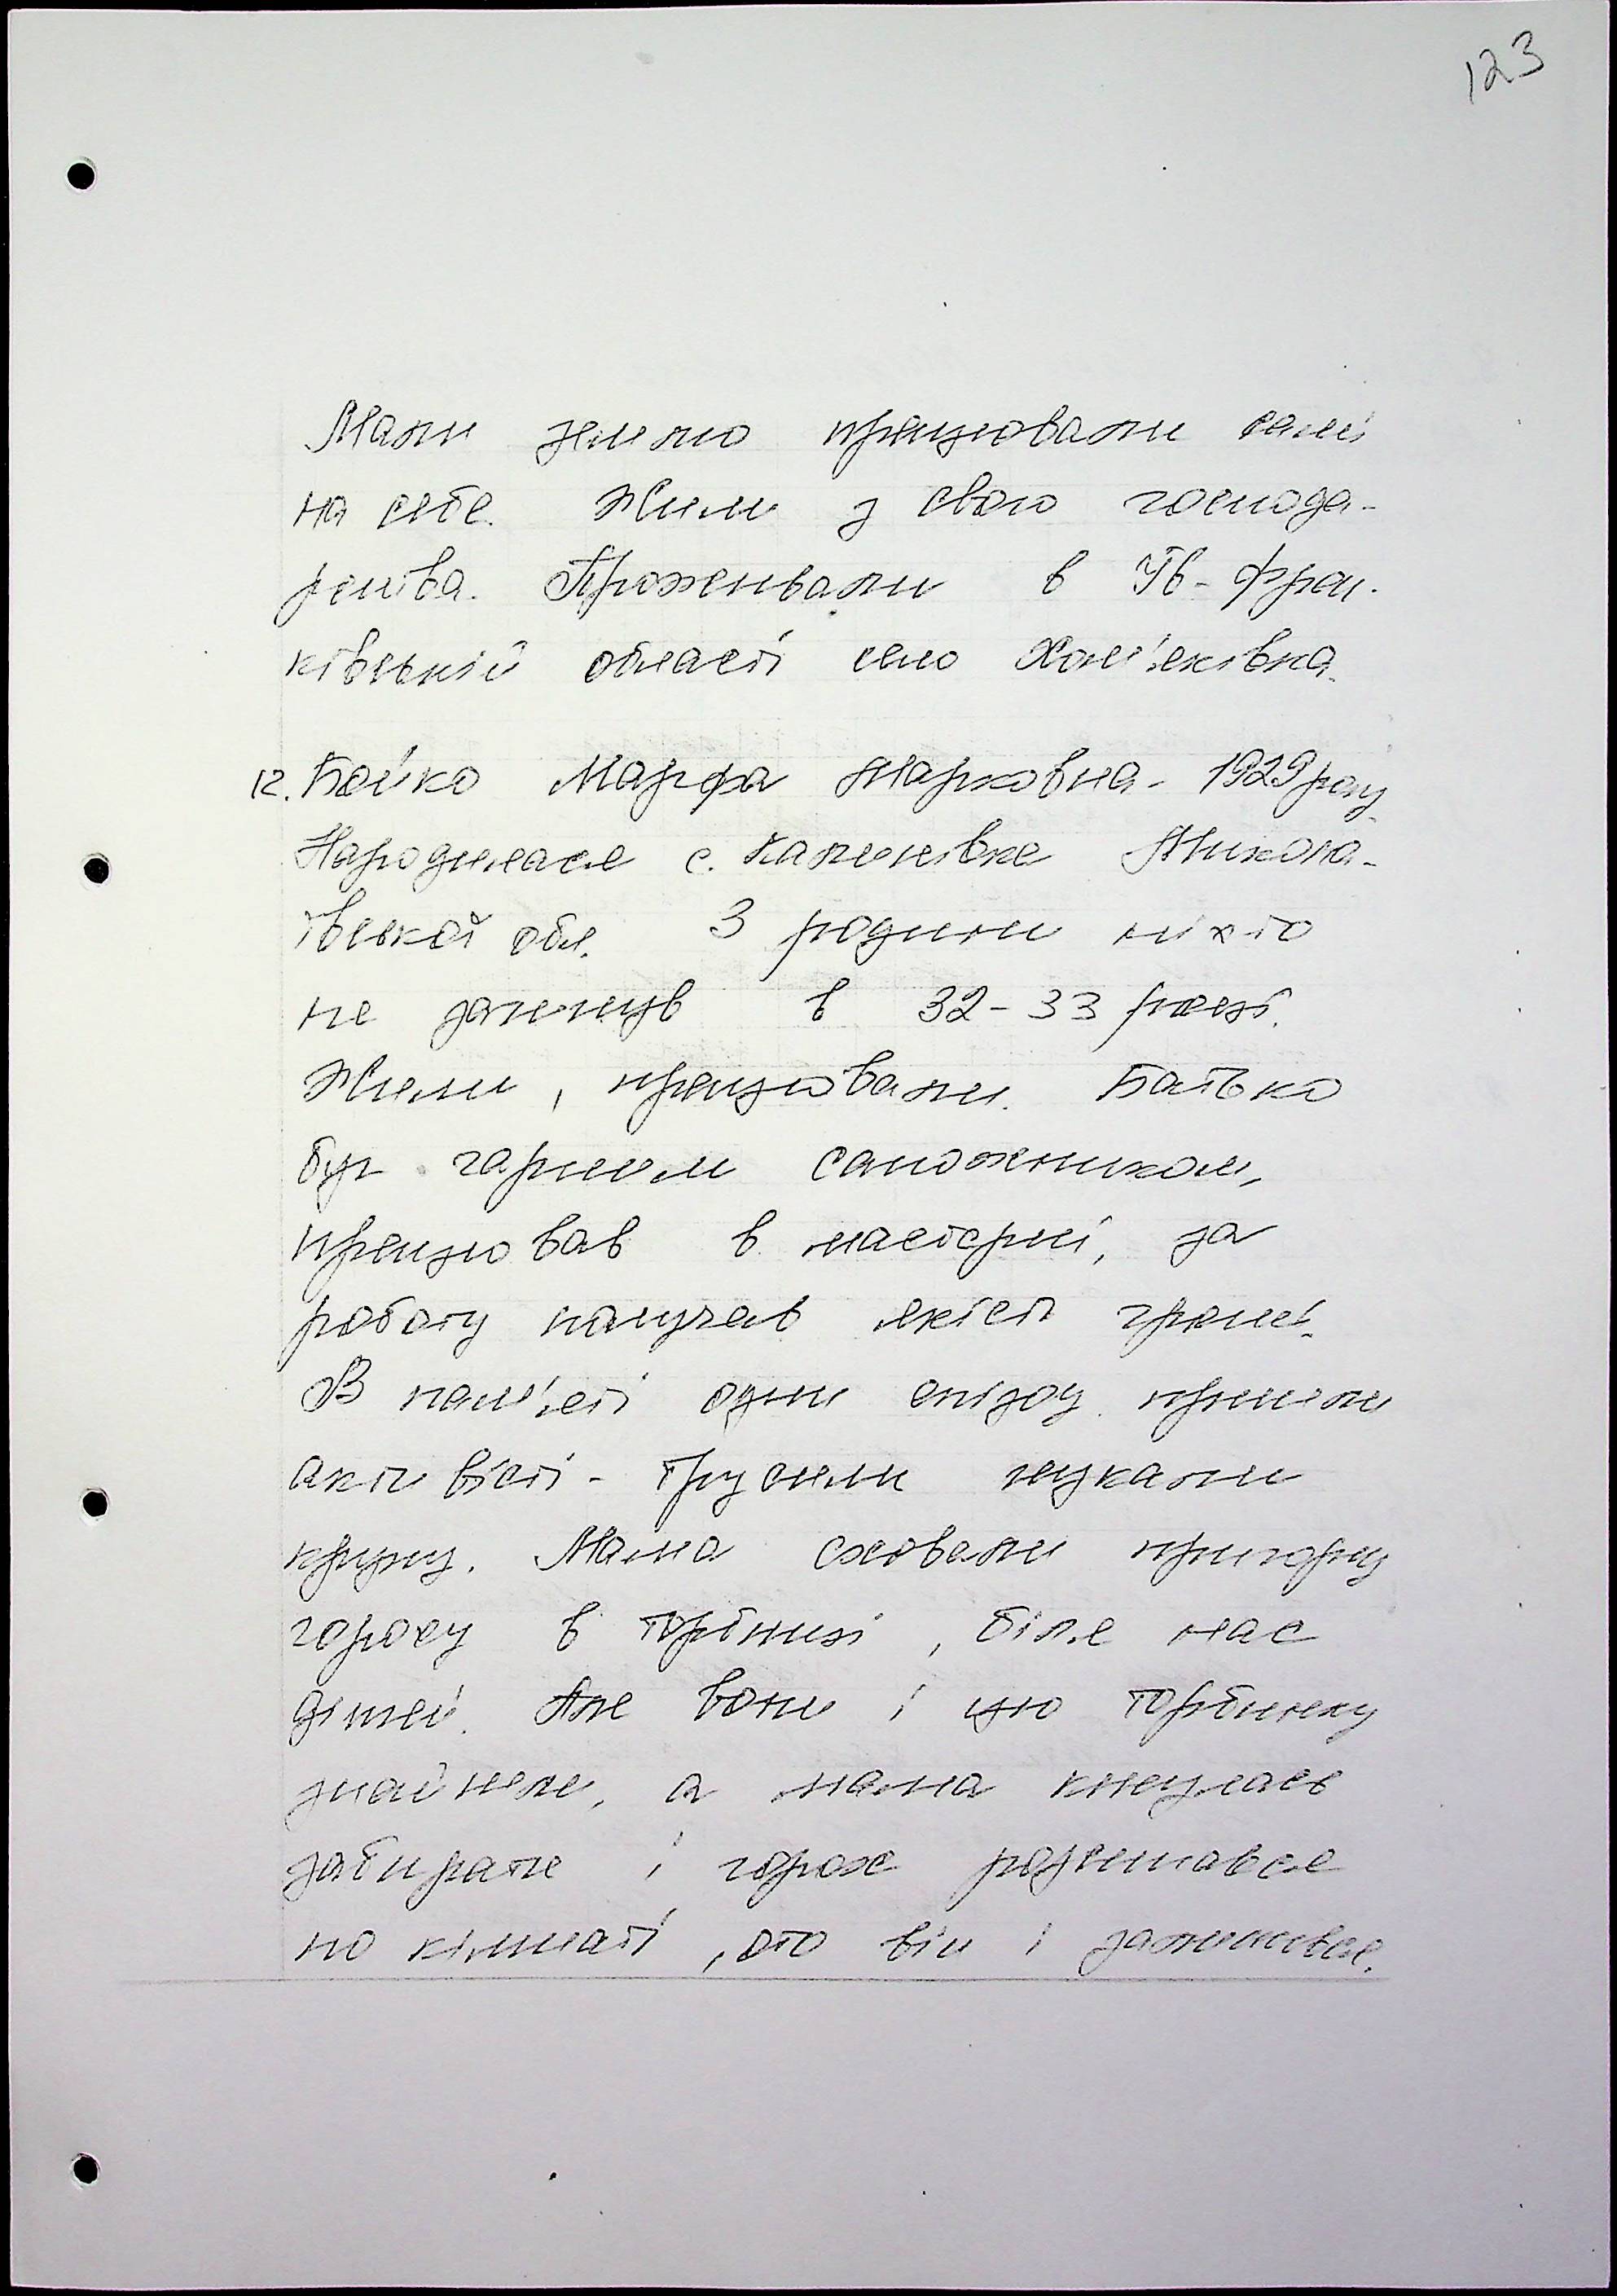 123
Мали землю працювали самі
на себе. Жили з свого господа-
рства. Проживали в Ів-Фран-
ківській області село Хом'яківка.
12. Бойко Марфа Марковна - 1929 року
Народилася с. Калинівка Микола-
ївської обл. З родини ніхто
не загинув в 32-33 роках.
Жили, працювали. Батько
був гарним сапожником,
працював в майстерні, за
роботу получав якісь гроші.
В пам'яті один епізод прийшли
активісті - трусили шукали
крупу. Мама сховали пригорщу
гороху в торбинці, біля нас
дітей. Але вони і цю торбинку
знайшли, а мама кинулась
забирати і горох розсипався
по кімнаті, ото він і залишився.